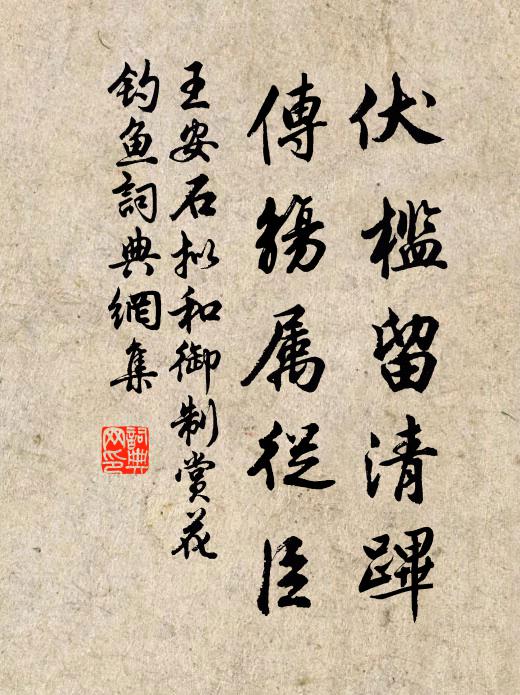 伏檻留清蹕
傳觴属從臣
王安石拟和御制賞花
钓鱼詞典網集
詞典網印